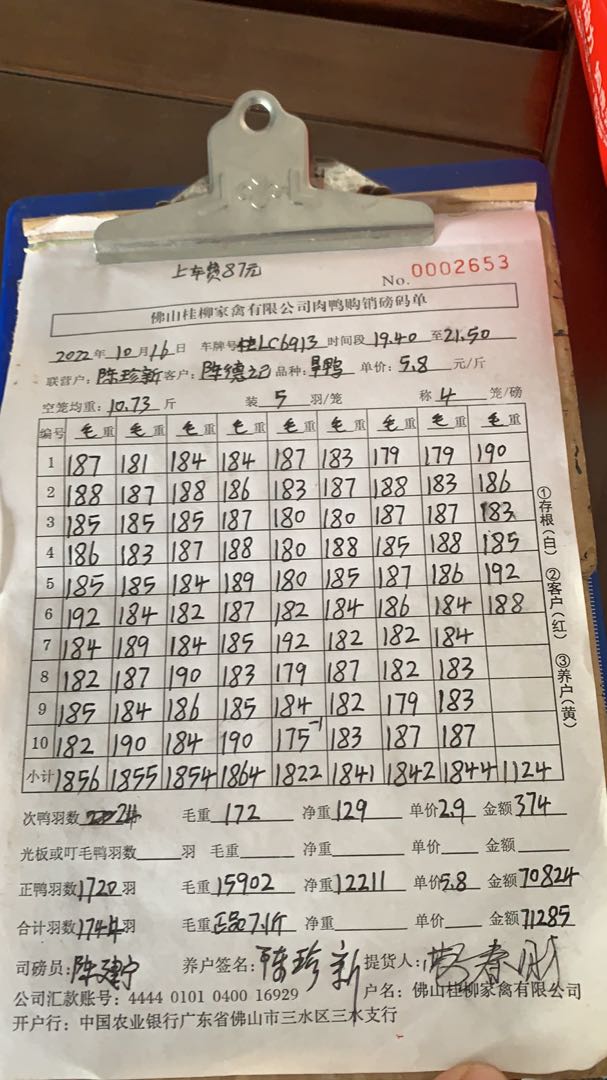 上车费87元
No. 0002653
佛山桂柳家禽有限公司肉鸭购销磅码单
2022年10月16日 车牌号桂LC6913 时间段19.40至21.50
联营户：陈珍新 客户：陈德记 品种：旱鸭 单价：5.8元/斤
空笼均重：10.73斤 装5羽/笼 称4笼/磅
编号 毛重 毛重 毛重 毛重 毛重 毛重 毛重 毛重 毛重
1 187 181 184 184 187 183 179 179 190
2 188 187 188 186 183 187 188 183 186
3 185 185 185 187 180 180 187 187 183
4 186 183 187 188 180 188 185 188 185
5 185 185 184 189 180 185 187 186 192
6 192 184 182 187 182 184 186 184 188
7 184 189 184 185 192 182 182 184
8 182 187 190 183 179 187 182 183
9 185 184 186 185 184 182 179 183
10 182 190 184 190 175-1 183 187 187
小计 1856 1855 1854 1864 1822 1841 1842 1844 1124
①存根(白) ②客户(红) ③养户(黄)
次鸭羽数 24 毛重172 净重129 单价2.9 金额374
光板或叮毛鸭羽数 羽 毛重 净重 单价 金额
正鸭羽数1720羽 毛重15902 净重12211 单价5.8 金额70824
合计羽数1744羽 毛重正品7.1斤 净重 单价 金额71285
司磅员：陈建宁 养户签名：陈珍新 提货人：
公司汇款账号：4444 0101 0400 16929 户名：佛山桂柳家禽有限公司
开户行：中国农业银行广东省佛山市三水区三水支行